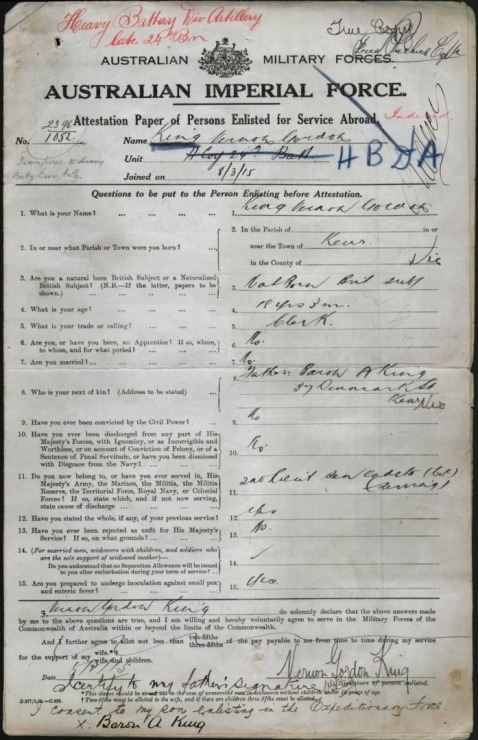 Heavy Battery Div Artillery
late 24th Bn
True Copy
AUSTRALIAN MILITARY FORCES.
AUSTRALIAN IMPERIAL FORCE.
Attestation Paper of Persons Enlisted for Service Abroad.
No. 1052 Name King Vernon Gordon
Unit H Coy 24th Batt H B D A
Joined on 8/3/15
Questions to be put to the Person Enlisting before Attestation.
1. What is your Name? ... ... ... 1. King Vernon Gordon
2. In or near what Parish or Town were you born? ... 2. In the Parish of in or
near the Town of Kew
in the County of Vic
3. Are you a natural born British Subject or a Naturalised British Subject? (N.B.—If the latter, papers to be shown.) ... ... 3. Nat Born Brit subj
4. What is your age? ... ... ... 4. 18 yrs 3 m
5. What is your trade or calling? ... ... 5. Clerk
6. Are you, or have you been, an Apprentice? If so, where, to whom, and for what period? ... ... 6. No
7. Are you married? ... ... ... 7. No
8. Who is your next of kin? (Address to be stated) ... 8. Father Baron A King
37 Denmark St
Kew Vic
9. Have you ever been convicted by the Civil Power? ... 9. No
10. Have you ever been discharged from any part of His Majesty's Forces, with Ignominy, or as Incorrigible and Worthless, or on account of Conviction of Felony, or of a Sentence of Penal Servitude, or have you been dismissed with Disgrace from the Navy? ... 10. No
11. Do you now belong to, or have you ever served in, His Majesty's Army, the Marines, the Militia, the Militia Reserve, the Territorial Force, Royal Navy, or Colonial Forces? If so, state which, and if not now serving, state cause of discharge ... 11. 2nd Lieut Sen Cadets
12. Have you stated the whole, if any, of your previous service? 12. Yes
13. Have you ever been rejected as unfit for His Majesty's Service? If so, on what grounds? ... 13. No
14. (For married men, widowers with children, and soldiers who are the sole support of widowed mother)—
Do you understand that no Separation Allowance will be issued to you after embarkation during your term of service? 14.
15. Are you prepared to undergo inoculation against small pox and enteric fever? ... 15. Yes
I, Vernon Gordon King do solemnly declare that the above answers made
by me to the above questions are true, and I am willing and hereby voluntarily agree to serve in the Military Forces of the
Commonwealth of Australia within or beyond the limits of the Commonwealth.
And I further agree to allot not less than two-fifths three-fifths of the pay payable to me from time to time during my service
for the support of my wife wife and children.
Date Vernon Gordon King
Signature of person enlisted.
I certify to my father's signature
I consent to my son enlisting in the Expeditionary Force
X. Baron A King